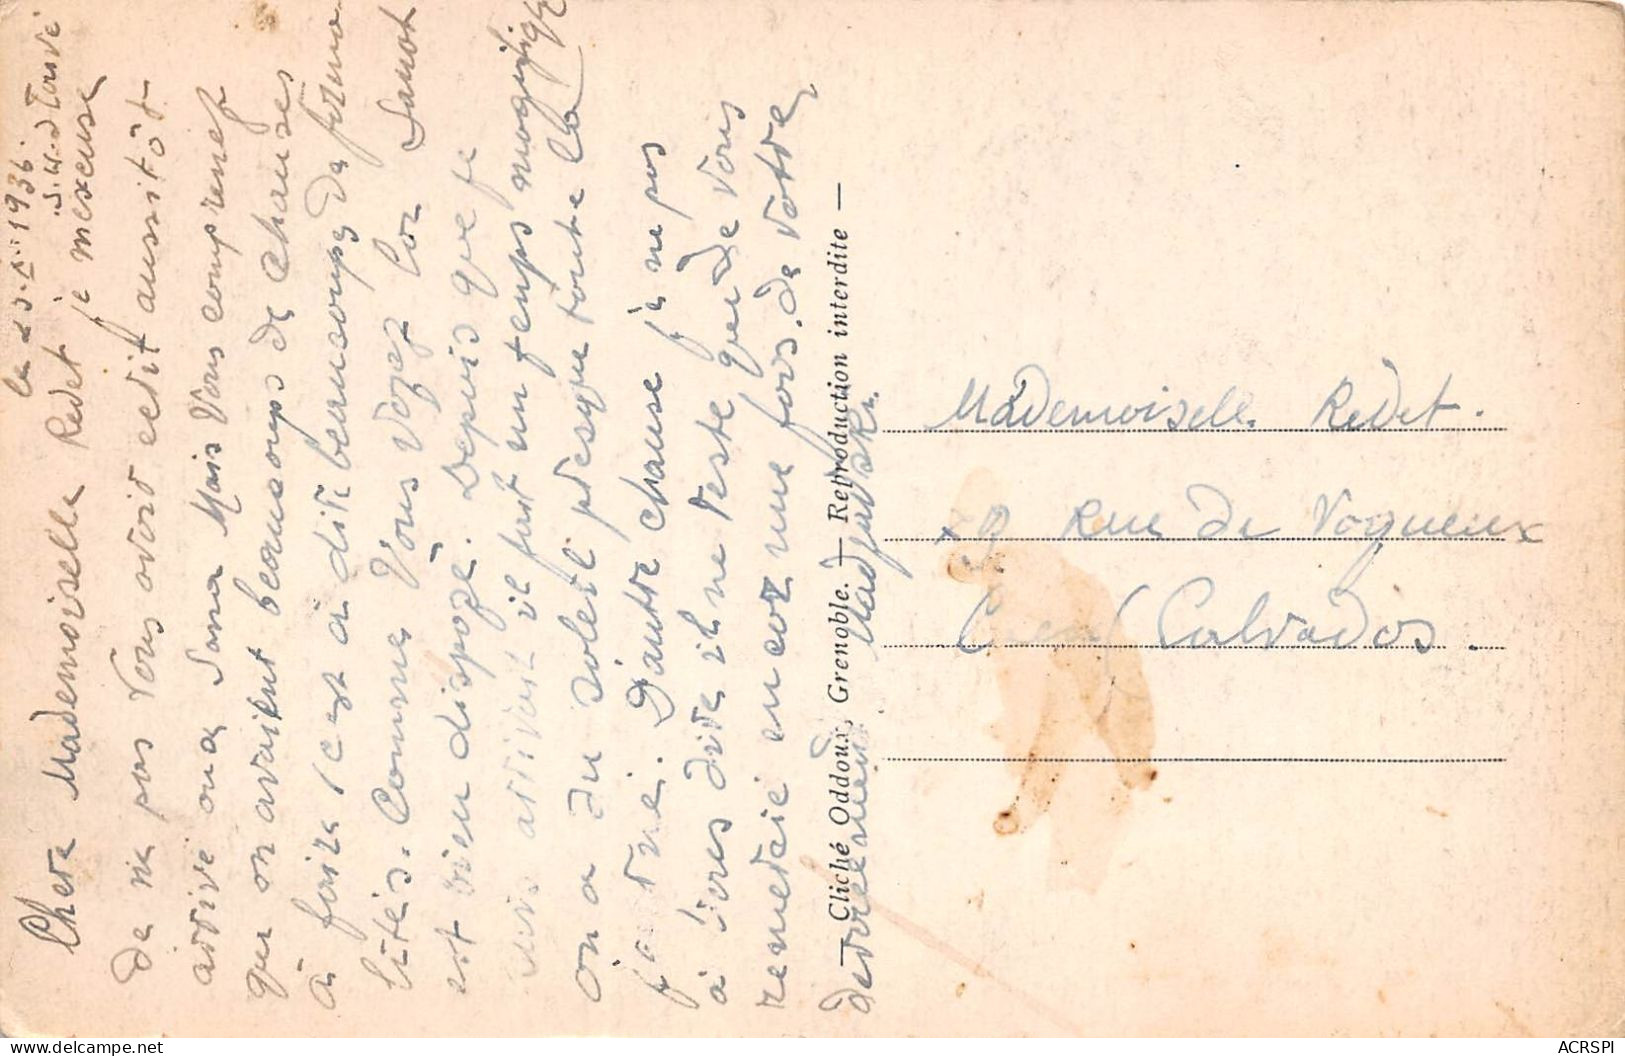 le 23.X.1936.
S.H. d Torvé
Chere Mademoiselle Redet je mexcuse
de ne pas vous avoir ecrit aussitôt
arrivé au Sana Mais vous comprenez
que on avaient beaucoups de chauses
à faire (c est à dire beaucoups de forma
lités. Comme Vous voyez lor Samot
est bien dispozé. Depuis que je
suis arriver il fait un temps magnifique
on a du soleil presque toute la
journé. D'autre chause je ne pas
à vous dire il ne reste que de vous
remercié encor une fois. de votre
— Cliché Oddoux, Grenoble. — Reproduction interdite —
Mademoiselle Redet.
29 Rue de Vaqueux
Caen (Calvados.
ACRSPI